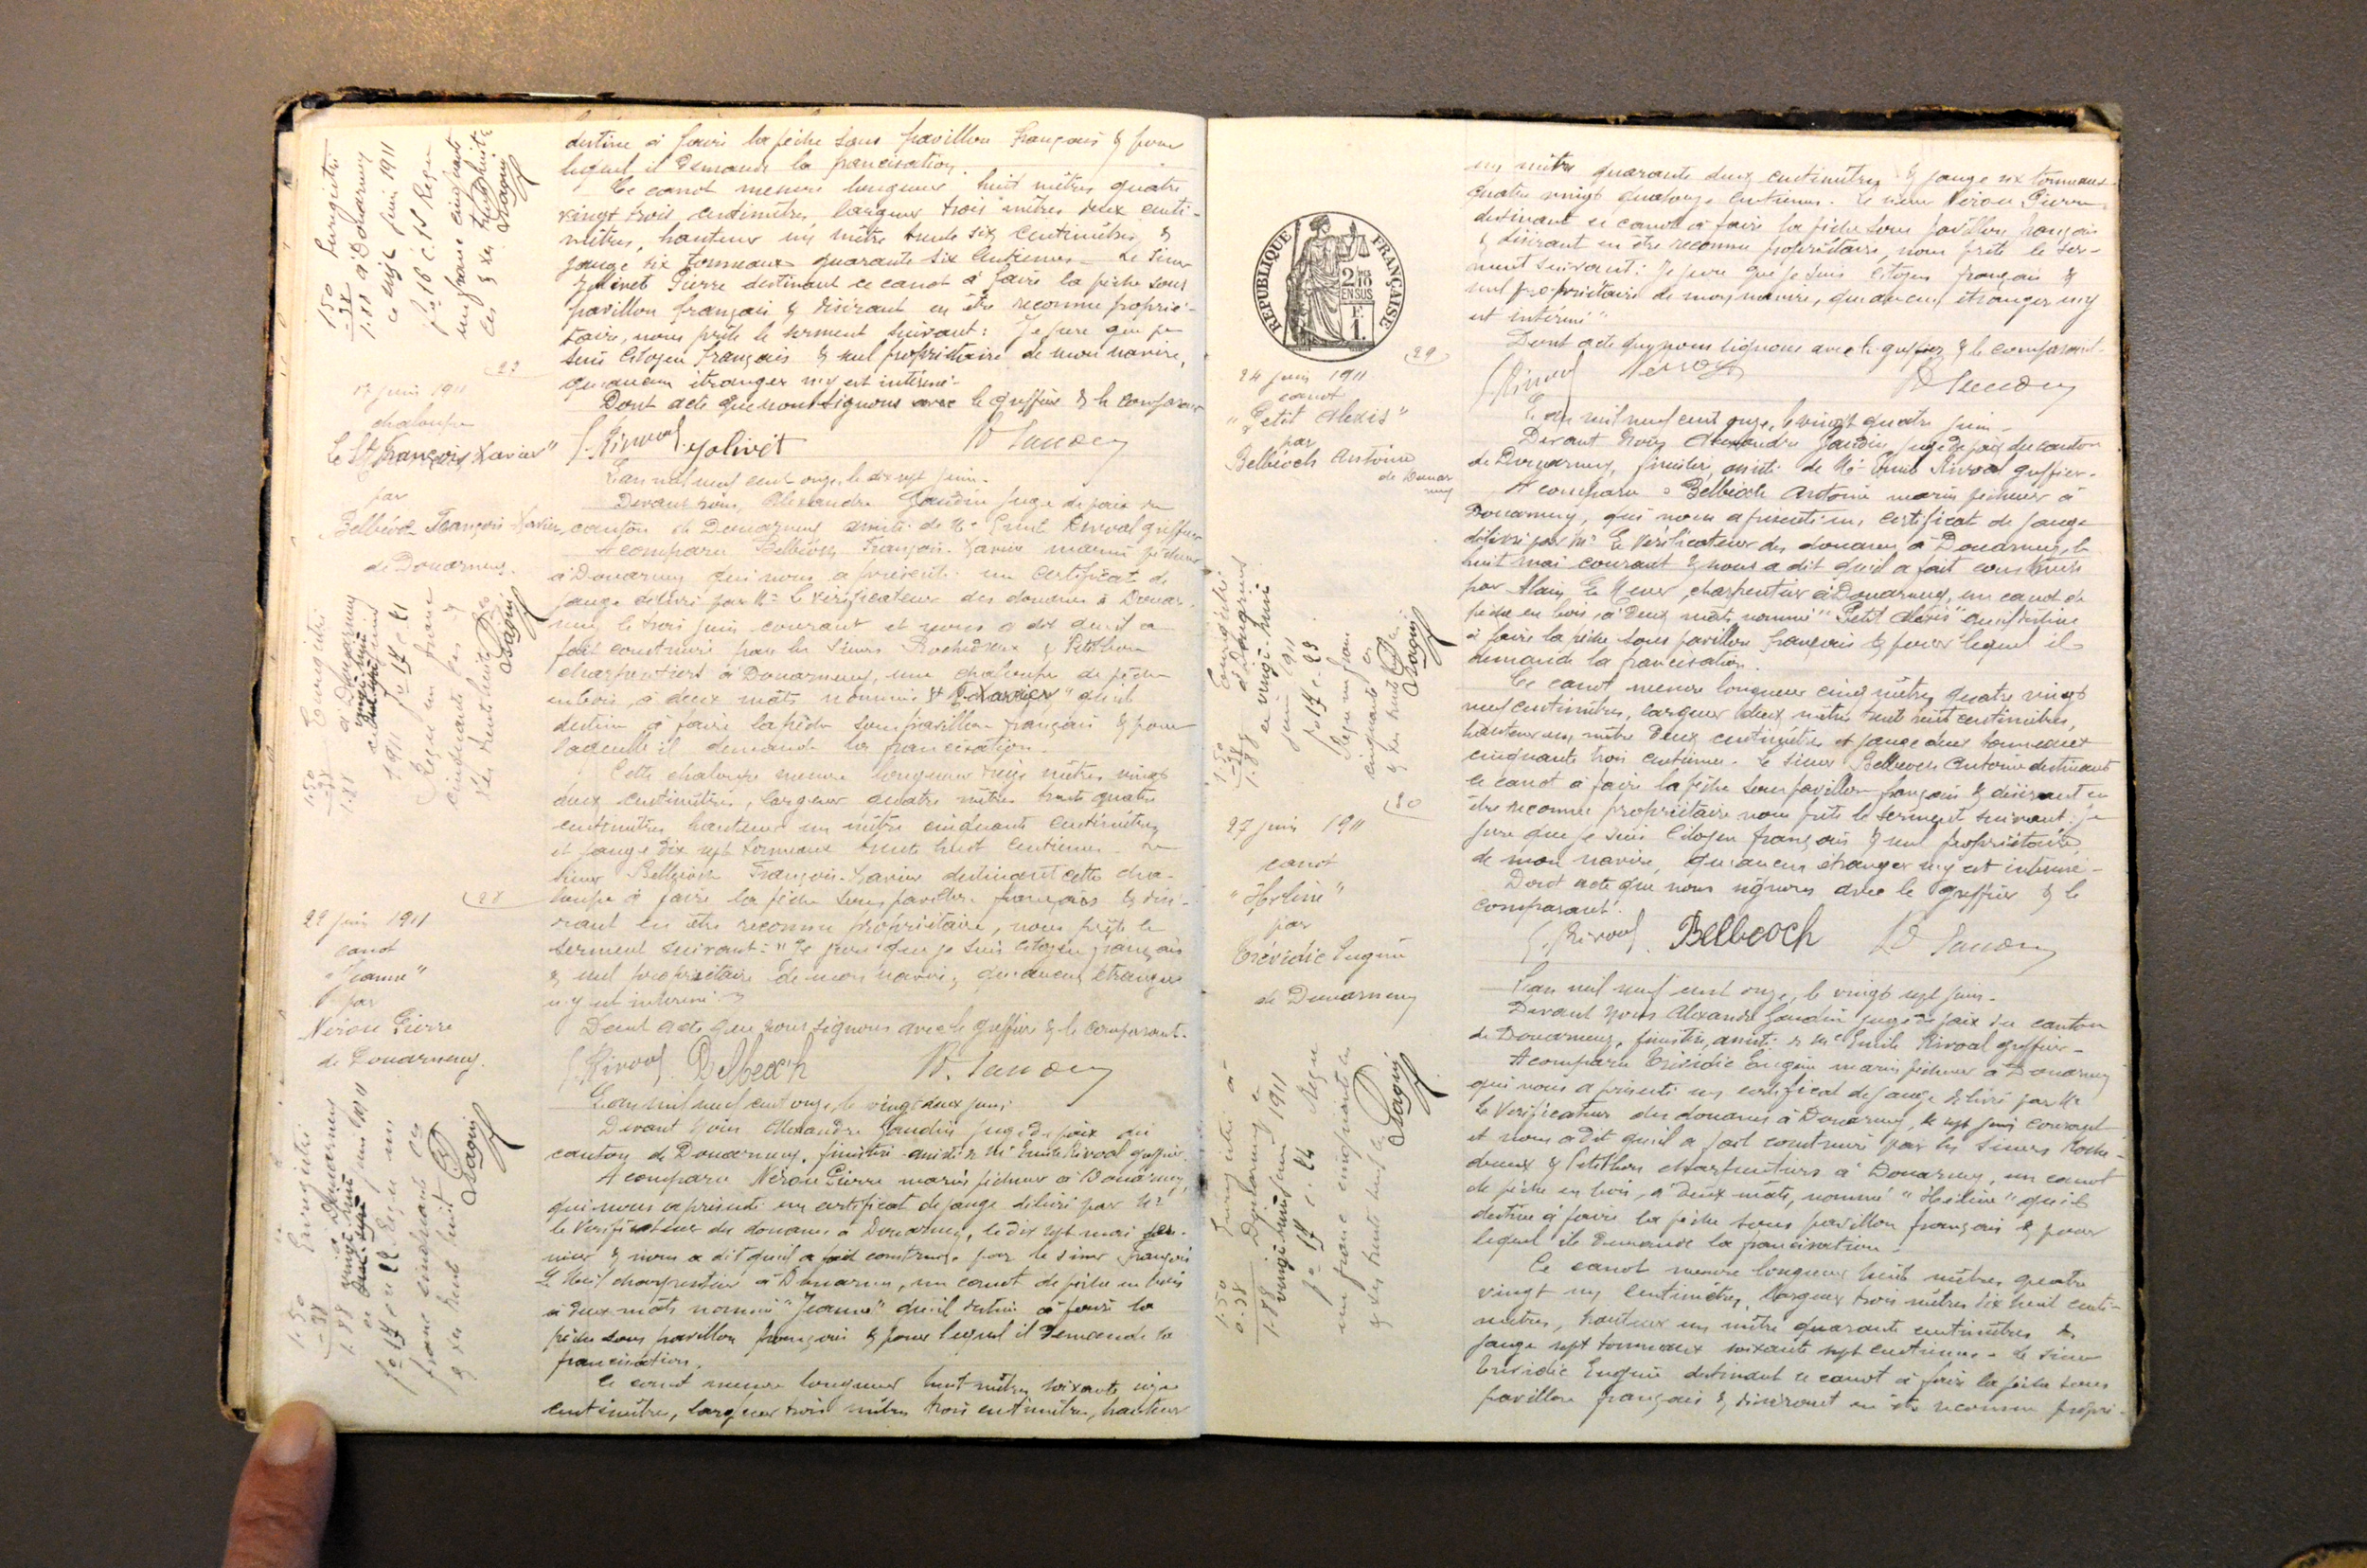 destine à faire la pêche sous pavillon français & pour
lequel il demande la francisation.
Ce canot mesure longueur huit mètres quatre
vingt trois centimètres largeur trois mètres deux centi-
mètres, hauteur un mètre trente six centimètres &
jauge six tonneaux quarante six centièmes. Le sieur
Jolivet Pierre destinant ce canot à faire la pêche sous
pavillon français & désirant en être reconnu proprié-
taire, nous prête le serment suivant: Je jure que je
suis citoyen français & seul propriétaire de mon navire,
qu'aucun étranger n'y est intéressé.
Dont acte que nous signons avec le greffier & le comparant
E. Rivoal Jolivet
Enregistré
à Douarnenez
juin 1911
fo 16 c.
Reçu
un franc cinquante
17 juin 1911
chaloupe
"Le St François Xavier"
par
Belbéoch François Xavier
de Douarnenez.
L'an mil neuf cent onze, le dix sept juin.
Devant nous, Alexandre Gaudin juge de paix du
canton de Douarnenez assisté de Me Emile Rivoal greffier
A comparu Belbéoch François-Xavier marin pêcheur
à Douarnenez qui nous a présenté un certificat de
jauge délivré par Mr le vérificateur des douanes à Douar-
nenez le trois juin courant et nous a dit qu'il a
fait construire par les sieurs Rochedreux & Petitbon
charpentiers à Douarnenez, une chaloupe de pêche
en bois, à deux mâts nommée St F. Xavier" qu'il
destine à faire la pêche sous pavillon français & pour
laquelle il demande la francisation.
Cette chaloupe mesure longueur treize mètres vingt
deux centimètres, largeur quatre mètres trente quatre
centimètres hauteur un mètre cinquante centimètres
et jauge dix sept tonneaux trente huit centièmes Le
sieur Belbéoch François-Xavier destinant cette cha-
loupe à faire la pêche sous pavillon français & dési-
rant en être reconnu propriétaire, nous prête le
serment suivant: "Je jure que je suis citoyen français
& seul propriétaire de mon navire, qu'aucun étranger
n'y est intéressé."
Dont acte que nous signons avec le greffier & le comparant.
E. Rivoal. Belbeoch
Enregistré
à Douarnenez
1911 fo 17 c 21
Reçu un franc
cinquante
28
22 juin 1911
canot
"Jeanne"
par
Néron Pierre
de Douarnenez.
L'an mil neuf cent onze, le vingt deux juin.
Devant nous Alexandre Gaudin juge de paix du
canton de Douarnenez, finistère assisté de Me Emile Rivoal greffier.
A comparu Néron Pierre marin pêcheur à Douarnenez,
qui nous a présenté un certificat de jauge délivré par Mr
le Vérificateur des douanes à Douarnenez, le dix sept mai der-
nier & nous a dit qu'il a fait construire par le sieur François
charpentier à Douarnenez, un canot de pêche en bois
à deux mâts nommé "Jeanne" qu'il destine à faire la
pêche sous pavillon français & pour lequel il demande la
francisation.
Ce canot mesure longueur huit mètres soixante
centimètres, largeur trois mètres trois centimètres, hauteur
Enregistré
à Douarnenez
juin 1911
fo 17 c 22 Reçu un
franc cinquante
RÉPUBLIQUE FRANÇAISE
2/10 EN SUS
1 F.
un mètre quarante deux centimètres & jauge six tonneaux
quatre vingt quatorze centièmes. Le sieur Néron Pierre
destinant ce canot à faire la pêche sous pavillon français
& désirant en être reconnu propriétaire, nous prête le ser-
ment suivant: "Je jure que je suis citoyen français &
seul propriétaire de mon navire, qu'aucun étranger n'y
est intéressé"
Dont acte que nous signons avec le greffier & le comparant.
E. Rivoal Néron
29
24 juin 1911
canot
"Petit Alexis"
par
Belbéoch Antoine
de Douar
nenez
L'an mil neuf cent onze, le vingt quatre juin.
Devant nous Alexandre Gaudin juge de paix du canton
de Douarnenez, finistère, assisté de Me Emile Rivoal greffier.
A comparu : Belbéoch Antoine marin pêcheur à
Douarnenez, qui nous a présenté un certificat de jauge
délivré par Mr le Vérificateur des douanes à Douarnenez, le
huit mai courant & nous a dit qu'il a fait construire
par Alain charpentier à Douarnenez, un canot de
pêche en bois, à deux mâts, nommé "Petit Alexis" qu'il destine
à faire la pêche sous pavillon français & pour lequel il
demande la francisation.
Ce canot mesure longueur cinq mètres quatre vingt
neuf centimètres, largeur deux mètres trente huit centimètres,
hauteur un mètre deux centimètres et jauge deux tonneaux
cinquante trois centièmes. Le sieur Belbeoch Antoine destinant
ce canot à faire la pêche sous pavillon français & désirant en
être reconnu propriétaire nous prête le serment suivant: "je
jure que je suis citoyen français & seul propriétaire
de mon navire, qu'aucun étranger n'y est intéressé.
Dont acte que nous signons avec le greffier & le
comparant.
E. Rivoal. Belbeoch
Enregistré
à Douarnenez
ce vingt-huit
juin 1911
fo 17 c. 23
Reçu un franc
cinquante
30
27 juin 1911
canot
"Hélène"
par
Trévidic Eugène
de Douarnenez
L'an mil neuf cent onze, le vingt sept juin.
Devant nous Alexandre Gaudin juge de paix du canton
de Douarnenez, finistère, assisté de Me Emile Rivoal greffier.
A comparu Trévidic Eugène marin pêcheur à Douarnenez
qui nous a présenté un certificat de jauge délivré par Mr
le Vérificateur des douanes à Douarnenez, le sept juin courant
et nous a dit qu'il a fait construire par les sieurs Roche-
dreux & Petitbon charpentiers à Douarnenez, un canot
de pêche en bois, à deux mâts, nommé "Hélène" qu'il
destine à faire la pêche sous pavillon français & pour
lequel il demande la francisation.
Ce canot mesure longueur huit mètres quatre
vingt un centimètres, largeur trois mètres dix huit centi-
mètres, hauteur un mètre quarante centimètres &
jauge sept tonneaux soixante sept centièmes. Le sieur
Trévidic Eugène destinant ce canot à faire la pêche sous
pavillon français & désirant en être reconnu proprié-
Enregistré à
Douarnenez
vingt-huit juin 1911
fo 17 c. 24 Reçu
un franc cinquante